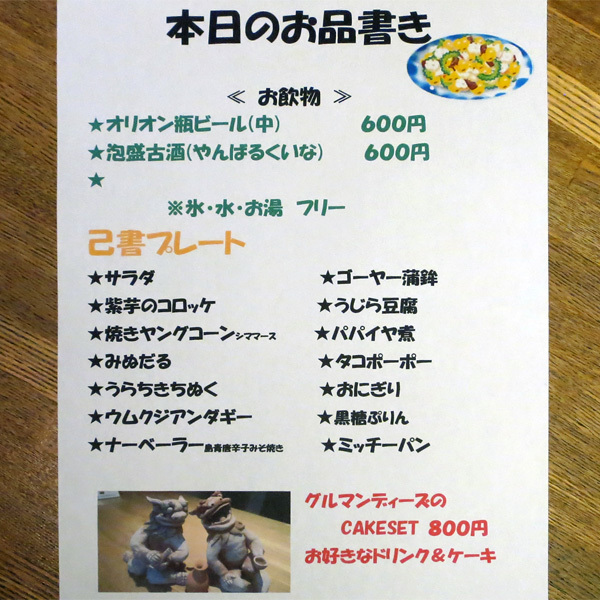 本日のお品書き
≪ お飲物 ≫
★オリオン瓶ビール(中) 600円
★泡盛古酒(やんばるくいな) 600円
★
※氷・水・お湯 フリー
己書プレート
★サラダ ★ゴーヤー蒲鉾
★紫芋のコロッケ ★うじら豆腐
★焼きヤングコーンシママース ★パパイヤ煮
★みぬだる ★タコポーポー
★うらちきちぬく ★おにぎり
★ウムクジアンダギー ★黒糖ぷりん
★ナーベーラー島青唐辛子みそ焼き ★ミッチーパン
グルマンディーズの
CAKESET 800円
お好きなドリンク&ケーキ